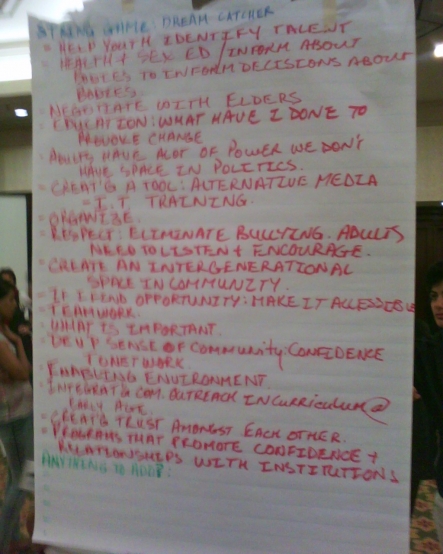 STRING GAME: DREAM CATCHER
- HELP YOUTH IDENTIFY TALENT
- HEALTH + SEX ED / INFORM ABOUT
BODIES TO INFORM DECISIONS ABOUT
BODIES.
- NEGOTIATE WITH ELDERS
- EDUCATION: WHAT HAVE I DONE TO
PROVOKE CHANGE
- ADULTS HAVE ALOT OF POWER WE DON'T
HAVE SPACE IN POLITICS.
- CREAT'G A TOOL: ALTERNATIVE MEDIA
- I.T. TRAINING.
- ORGANIZE.
- RESPECT: ELIMINATE BULLYING. ADULTS
NEED TO LISTEN + ENCOURAGE.
- CREATE AN INTERGENERATIONAL
SPACE IN COMMUNITY.
- IF I FIND OPPORTUNITY: MAKE IT ACCESSIBLE
- TEAMWORK.
- WHAT IS IMPORTANT.
- SENSE OF COMMUNITY: CONFIDENCE
TO NETWORK.
- ENABLING ENVIRONMENT.
- INTEGRAT'G COM. OUTREACH IN CURRICULUM @
EARLY AGE.
- CREAT'G TRUST AMONGST EACH OTHER.
- PROGRAMS THAT PROMOTE CONFIDENCE +
RELATIONSHIPS WITH INSTITUTIONS
ANYTHING TO ADD?: